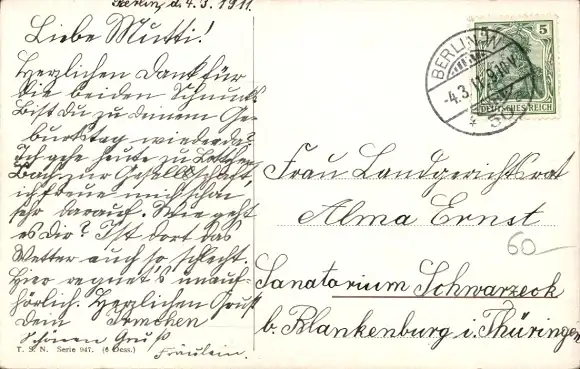 Berlin d. 4.3.1911.
Liebe Mutti!
Herzlichen Dank für
die beiden Schmuck
Bist du zu deinem Ge-
burtstag wieder da?
Ich gehe heute zu Lottchen
Bach zur Gesellschaft,
ich freue mich schon
sehr darauf. Wie geht
es Dir? Ist dort das
Wetter auch so schlecht.
Hier regnet's unauf-
hörlich. Herzlichen Gruß
Dein Irmchen
Schönen Gruß
Fräulein.
T. S. N. Serie 947. (6 Dess.)
BERLIN NW
-4.3.11. 9-10 V.
5
DEUTSCHES REICH
Frau Landgerichtsrat
Alma Ernst
60
Sanatorium Schwarzeck
b. Blankenburg i. Thüringen